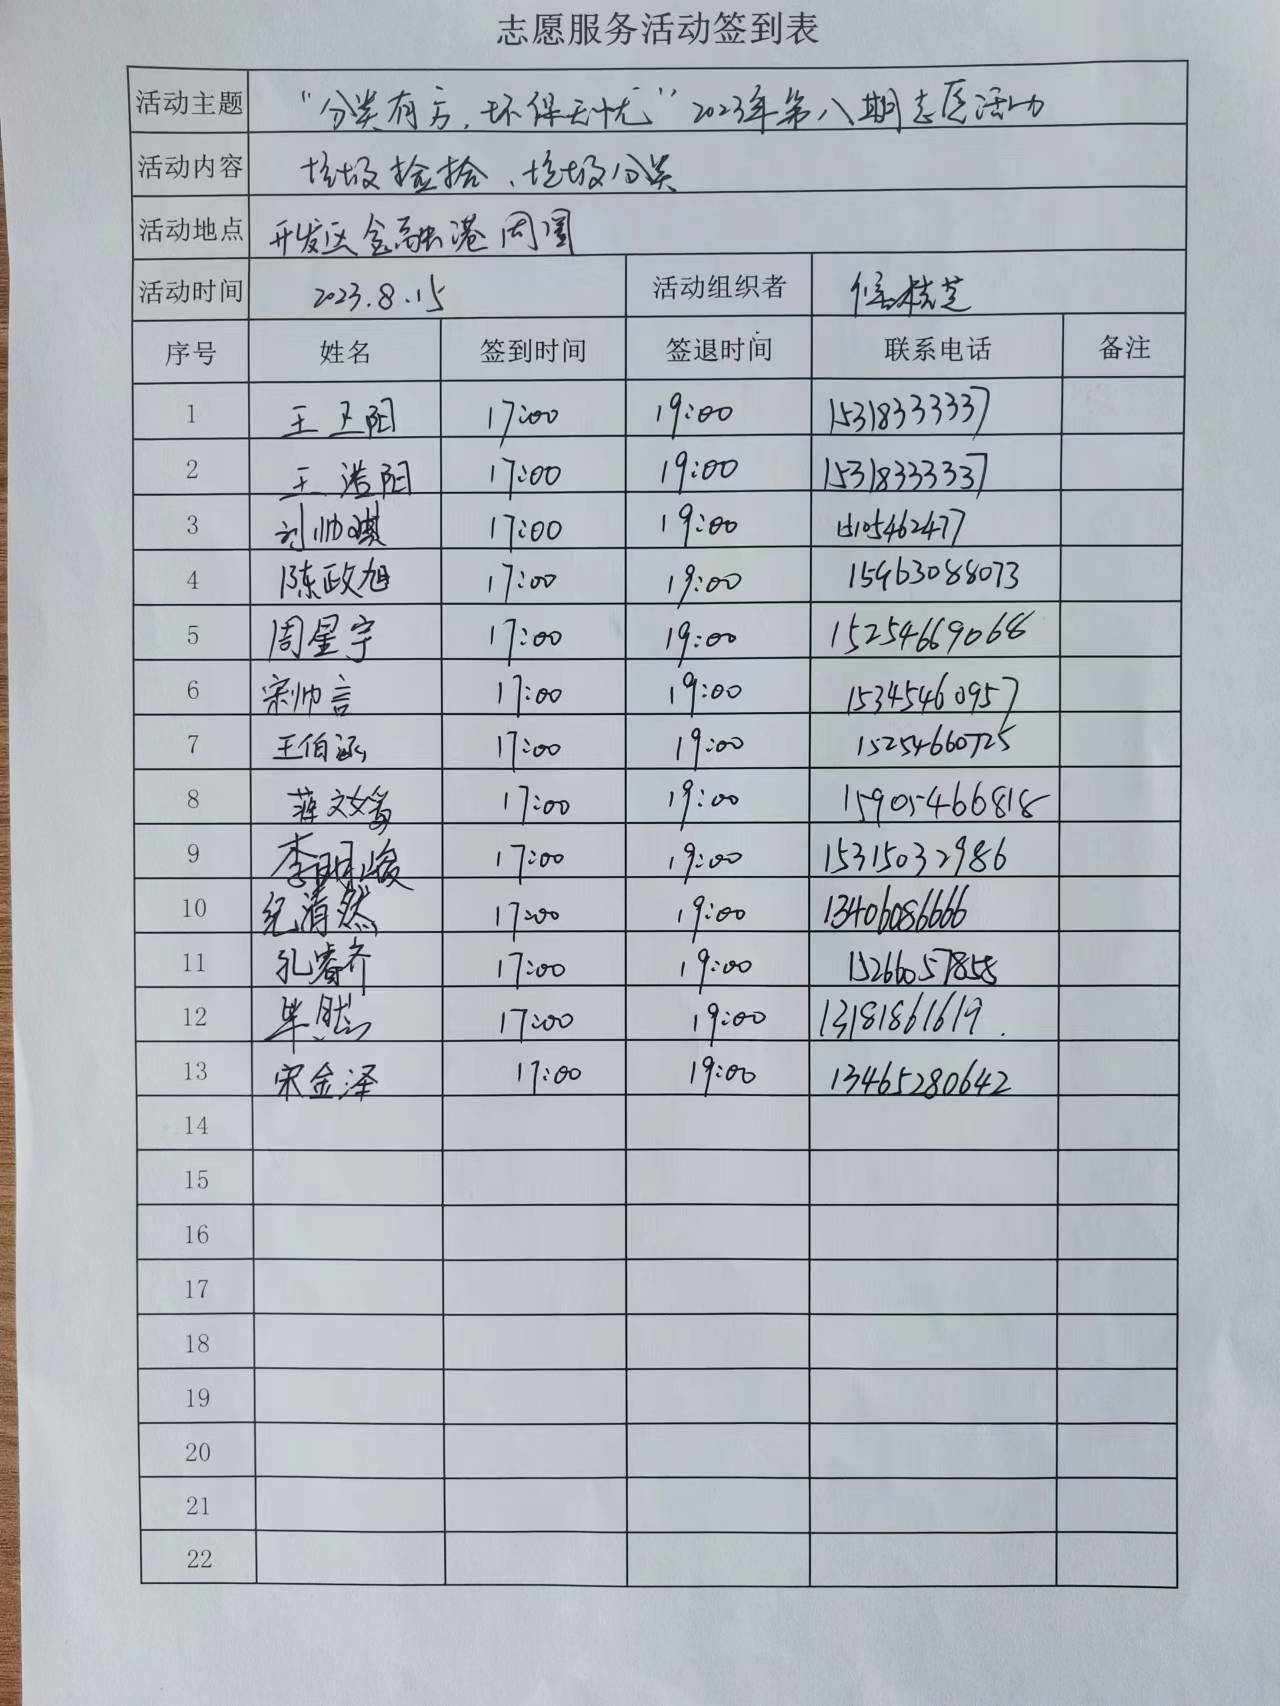 志愿服务活动签到表
活动主题 “分类有方，环保无忧”2023年第八期志愿活动
活动内容 垃圾捡拾、垃圾分类
活动地点 开发区金融港周围
活动时间 2023.8.15 活动组织者
序号 姓名 签到时间 签退时间 联系电话 备注
1 王 阳 17:00 19:00 15318333337
2 王浩阳 17:00 19:00 15318333337
3 刘帅琪 17:00 19:00 15105462477
4 陈政旭 17:00 19:00 15963088073
5 周星宇 17:00 19:00 15254669068
6 宋帅言 17:00 19:00 15345460957
7 王伯涵 17:00 19:00 15254660725
8 蒋文 17:00 19:00 15905466818
9 李明峻 17:00 19:00 15315032986
10 纪清然 17:00 19:00 13406086666
11 孔睿齐 17:00 19:00 15266057858
12 17:00 19:00 13181861619
13 宋金泽 17:00 19:00 13465280642
14
15
16
17
18
19
20
21
22